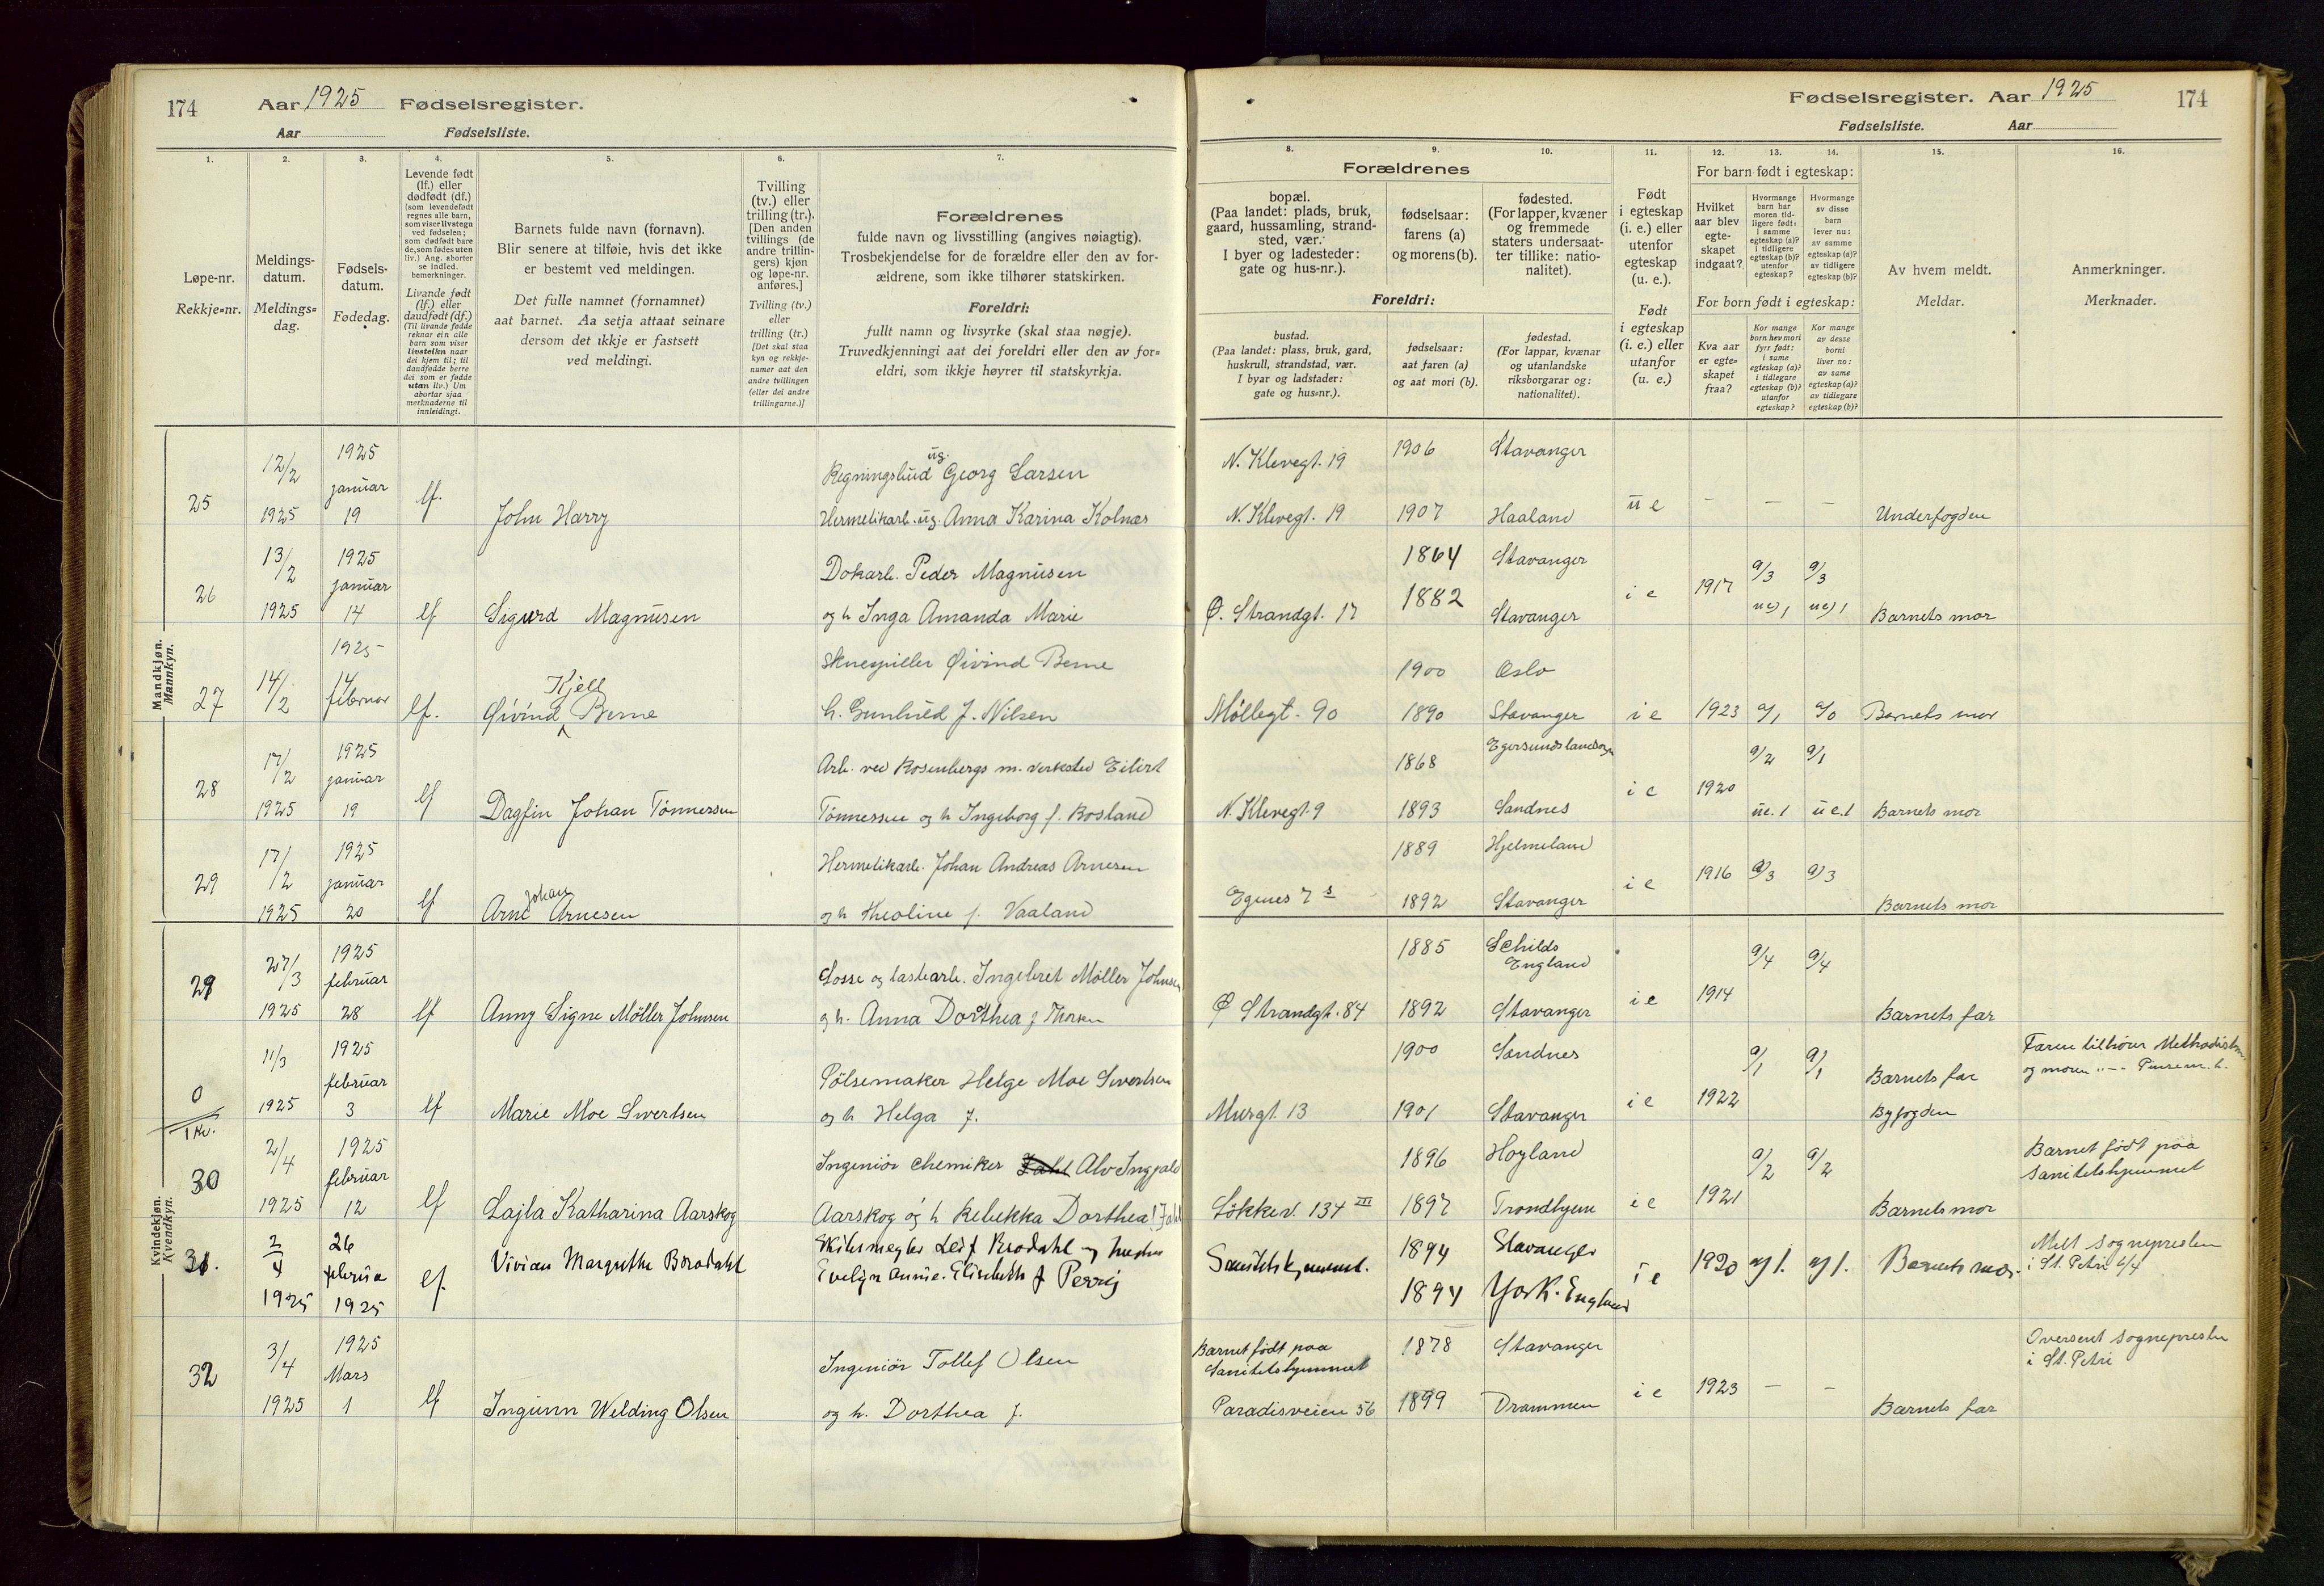 174 Aar 1925 Fødselsregister.
Aar Fødselsliste.
Fødselsregister. Aar 1925 174
Fødselsliste. Aar
1. 2. 3. 4. 5. 6. 7.
Løpe-nr.
Rekkje=nr.
Meldings-
datum.
Meldings=
dag.
Fødsels-
datum.
Fødedag.
Levende født
(lf.) eller
dødfødt (df.)
(som levendefødt
regnes alle barn,
som viser livstegn
ved fødselen;
som dødfødt bare
de, som fødes uten
liv.) Ang. aborter
se indled.
bemerkninger.
Livande født
(lf.) eller
daudfødt (df.)
(Til livande fødde
reknar ein alle
barn som viser
livsteikn naar
dei kjem til; til
daudfødde berre
dei som er fødde
utan liv.) Um
abortar sjaa
merknaderne til
innleidingi.
Barnets fulde navn (fornavn).
Blir senere at tilføie, hvis det ikke
er bestemt ved meldingen.
Det fulle namnet (fornamnet)
aat barnet. Aa setja attaat seinare
dersom det ikkje er fastsett
ved meldingi.
Tvilling
(tv.) eller
trilling (tr.).
[Den anden
tvillings (de
andre trillin-
gers) kjøn
og løpe-nr.
anføres.]
Tvilling (tv.)
eller
trilling (tr.)
[Det skal staa
kyn og rekkje-
numer aat den
andre tvillingen
(eller dei andre
trillingarne.)]
Forældrenes
fulde navn og livsstilling (angives nøiagtig).
Trosbekjendelse for de forældre eller den av for-
ældrene, som ikke tilhører statskirken.
Foreldri:
fullt namn og livsyrke (skal staa nøgje).
Truvedkjenningi aat dei foreldri eller den av for=
eldri, som ikkje høyrer til statskyrkja.
8. 9. 10. 11. 12. 13. 14. 15. 16.
Forældrenes
bopæl.
(Paa landet: plads, bruk,
gaard, hussamling, strand-
sted, vær.
I byer og ladesteder:
gate og hus-nr.).
fødselsaar:
farens (a)
og morens (b).
fødested.
(For lapper, kvæner
og fremmede
staters undersaat-
ter tillike: natio-
nalitet).
Foreldri:
bustad.
(Paa landet: plass, bruk, gard,
huskrull, strandstad, vær.
I byar og ladstader:
gate og hus=nr.).
fødselsaar:
aat faren (a)
og aat mori (b).
fødestad.
(For lappar, kvænar
og utanlandske
riksborgarar og:
nationalitet).
Født
i egteskap
(i. e.) eller
utenfor
egteskap
(u. e.).
Født
i egteskap
(i. e.) eller
utanfor
(u. e.)
For barn født i egteskap:
Hvilket
aar blev
egte-
skapet
indgaat?
Hvormange
barn har
moren tid-
ligere født:
i samme
egteskap (a)?
i tidligere
egteskap (b)?
utenfor
egteskap?
Hvormange
av disse
barn
lever nu:
av samme
egteskap (a)?
av tidligere
egteskap (b)?
For born født i egteskap:
Kva aar
er egte-
skapet
fraa?
Kor mange
born hev mori
fyrr født:
i same
egteskap (a)?
i tidlegare
egteskap (b)?
utanfor
egteskap?
Kor mange
av desse
borni
liver no:
av same
egteskap (a)?
av tidlegare
egteskap (b)?
Av hvem meldt.
Meldar.
Anmerkninger.
Merknader.
Mandkjøn.
Mannkyn.
12/2 1925 ug. 1906 Stavanger
januar Regningsbud Georg Larsen N. Klevegt. 19
25 1925 19 lf. John Harry Hermetikarb. ug. Anna Karina Kolnes N. Klevegt. 19 1907 Haaland u e – – – Underfogden
13/2 1925 Dokarb. Peder Magnusen 1864 Stavanger a/3 a/3
26 januar i e 1917
1925 14 lf Sigurd Magnusen og h Inga Amanda Marie Ø. Strandgt. 17 1882 Stavanger ue) 1 ue) 1 Barnets mor
1925 Skuespiller Øivind Berne 1900 Oslo
14 Kjell
27 14/2 februar lf. Øivind Berne h. Gunhild f. Nilsen Møllegt. 90 1890 Stavanger i e 1923 a/1 a/0 Barnets mor
17/2 1925 Arb. ved Rosenbergs m. verksted Eilert 1868 Egersunds landsogn a/2 a/1
28 januar i e 1920
1925 19 lf Dagfin Johan Tönnessen Tönnessen og h Ingeborg f. Rosland N. Klevegt. 9 1893 Sandnes ue. 1 u e.1 Barnets mor
17/2 1925 Hermetikarb. Johan Andreas Arnesen 1889 Hjelmeland
29 januar Johan i e 1916 a/3 a/3
1925 20 lf Arne Arnesen og h Theoline f. Vaaland Egenes 7 s 1892 Stavanger Barnets mor
Kvindekjøn.
Kvendkyn.
27/3 1925 1885 Schilds
England a/4 a/4
29 februar Losse og lastearb. Ingebret Møller Johnsen
1925 28 lf Anny Signe Möller Johnsen og h. Anna Dorthea f Thorsen Ø Strandgt. 84 1892 Stavanger i e 1914 Barnets far
11/3 1925 1900 Sandnes a/1 a/1 Faren tilhører Methodistkm.
og moren " –
0 februar Pölsemaker Helge Moe Sivertsen Barnets far
1 kv. 1925 3 lf Marie Moe Sivertsen og h Helga f. Murgt. 13 1901 Stavanger i e 1922 Byfogden
2/4 1925 Ingeniør chemiker Alv Ingvald 1896 Høyland a/2 a/2 Barnet født paa
Sanitetshjemmet
30 februar
1925 12 lf Lajla Katharina Aarskog Aarskog og h Rebekka Dorthea f. Jahl Løkkev. 134 III 1897 Trondhjem i e 1921 Barnets mor
2/4 26 Skibsmegler Leif Brodahl og hustru 1894 Stavanger Melt sognepresten
31. februa lf Vivian Margrethe Brodahl Evelyn Annie Elisabeth f Perrij Sanitetshjemmet. i e 1920 a/1. a/1. Barnets mor. i St. Petri 6/4
1925 1925 1894 York. England
3/4 1925 Barnet født paa 1878 Stavanger Oversent sognepresten
i St. Petri
32 Mars Ingeniør Tollef Olsen Sanitetshjemmet
1925 1 lf Ingunn Welding Olsen og h. Dorthea f. Paradisveien 56 1899 Drammen i e 1923 – – Barnets far